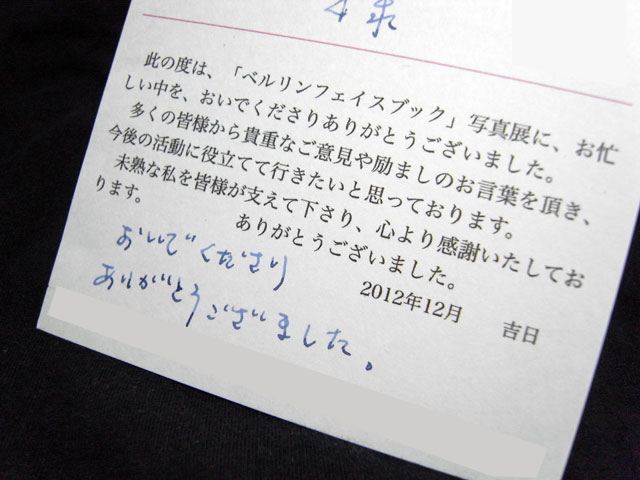 此の度は、「ベルリンフェイスブック」写真展に、お忙
しい中を、おいでくださりありがとうございました。
多くの皆様から貴重なご意見や励ましのお言葉を頂き、
今後の活動に役立てて行きたいと思っております。
未熟な私を皆様が支えて下さり、心より感謝いたしてお
ります。
ありがとうございました。
2012年12月 吉日
おいでくださり
ありがとうございました。